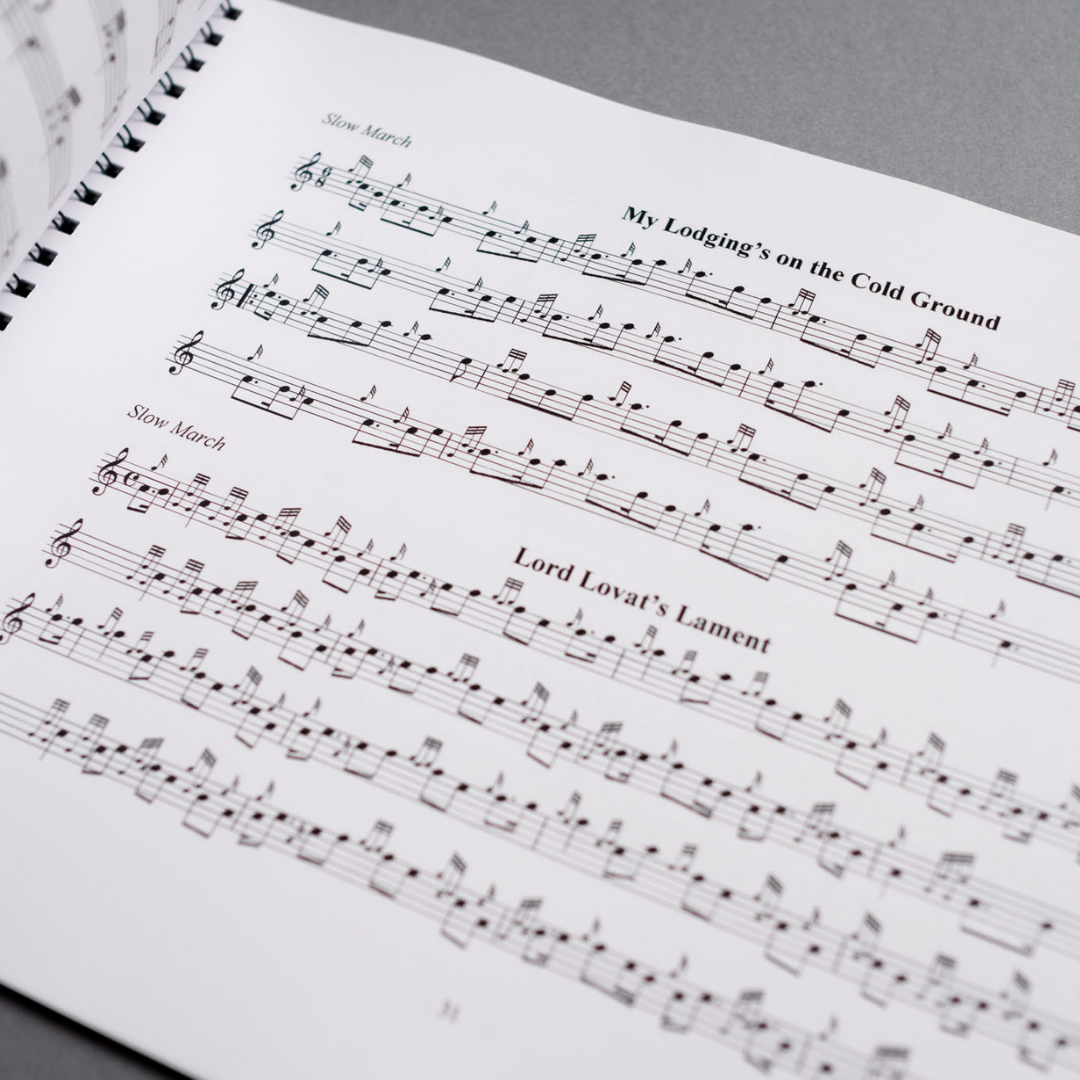 Slow March
My Lodging's on the Cold Ground
6
8
Slow March
Lord Lovat's Lament